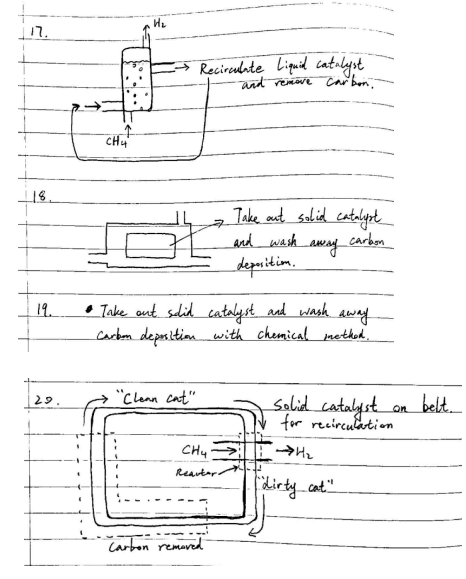 17.
H₂
Recirculate Liquid catalyst
and remove Carbon.
CH₄
18.
Take out solid catalyst
and wash away carbon
deposition.
19. • Take out solid catalyst and wash away
Carbon deposition with chemical method.
20. "Clean cat"
Solid catalyst on belt.
for recirculation
CH₄ → H₂
Reactor
"dirty cat"
Carbon removed